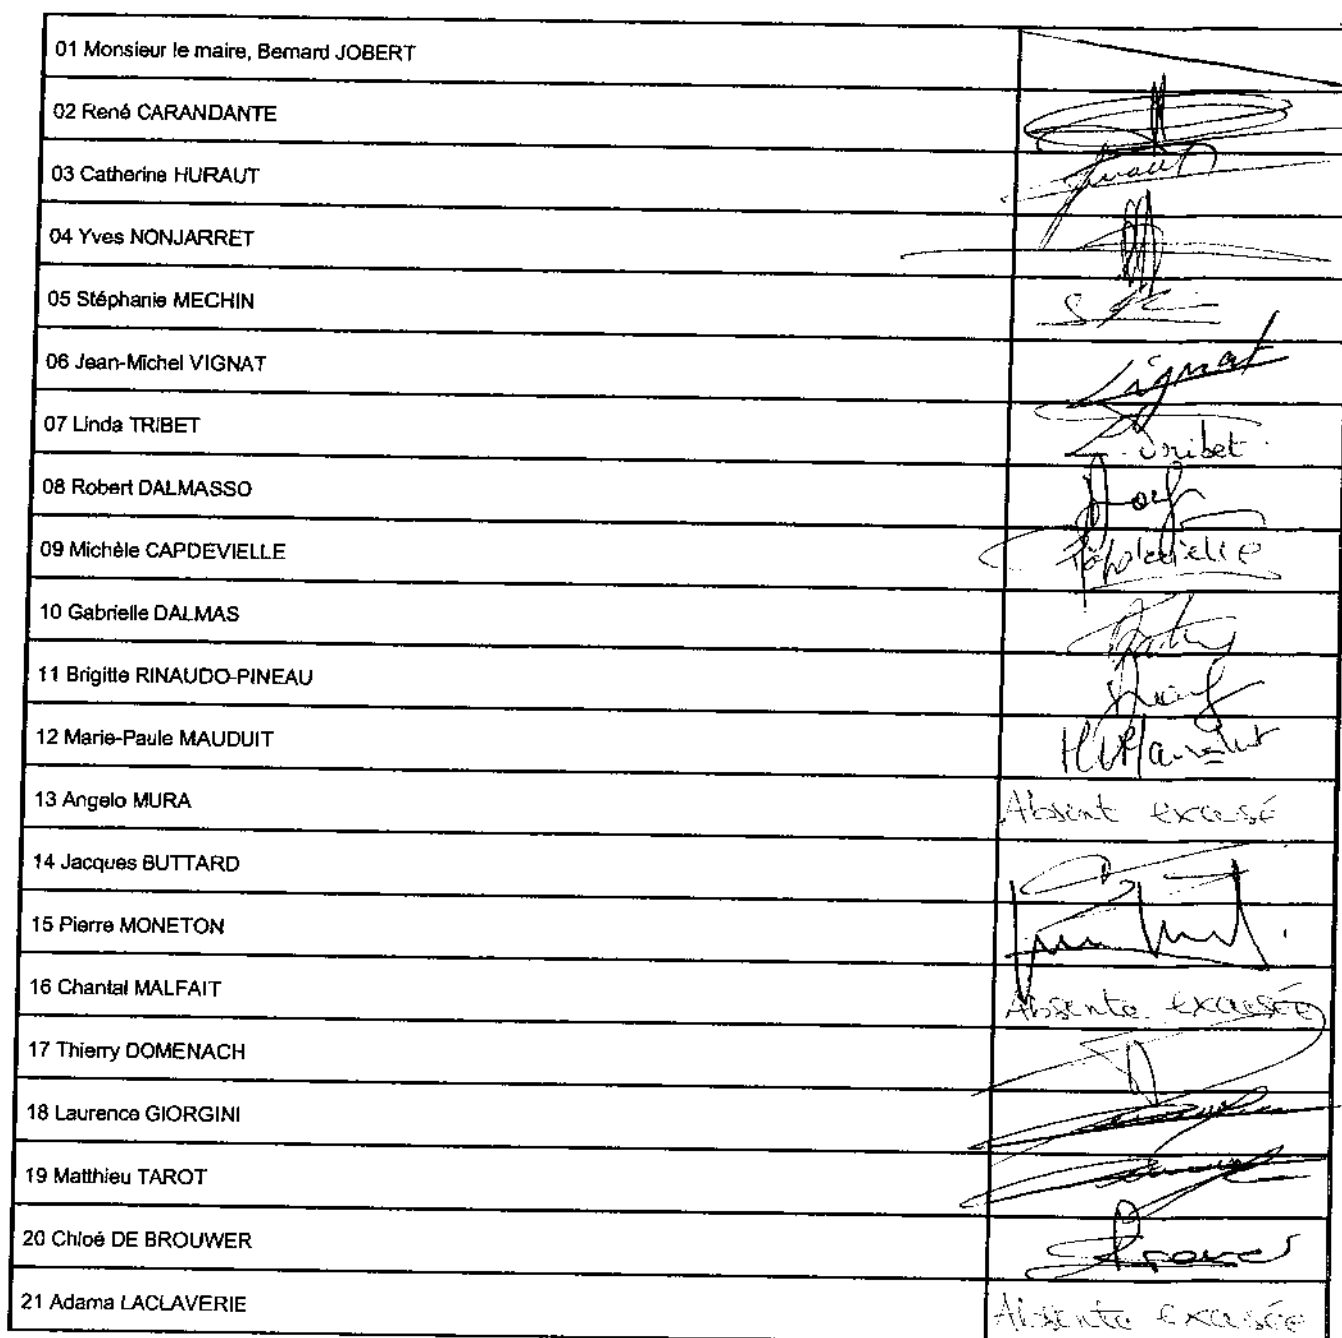 01 Monsieur le maire, Bernard JOBERT
02 René CARANDANTE
03 Catherine HURAUT
04 Yves NONJARRET
05 Stéphanie MECHIN
06 Jean-Michel VIGNAT
Vignat
07 Linda TRIBET
L. Tribet
08 Robert DALMASSO
09 Michèle CAPDEVIELLE
Capdevielle
10 Gabrielle DALMAS
11 Brigitte RINAUDO-PINEAU
12 Marie-Paule MAUDUIT
13 Angelo MURA Absent excusé
14 Jacques BUTTARD
15 Pierre MONETON
16 Chantal MALFAIT Absente excusée
17 Thierry DOMENACH
18 Laurence GIORGINI
19 Matthieu TAROT
20 Chloé DE BROUWER
21 Adama LACLAVERIE Absente excusée